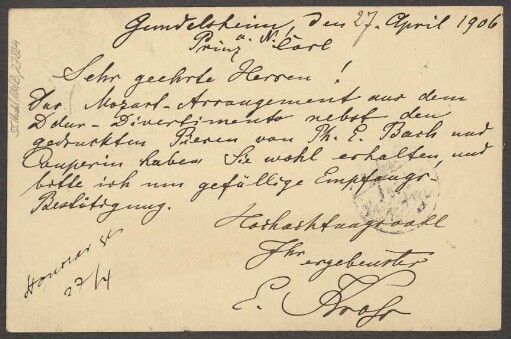 Gundelsheim, den 27. April 1906
a. N.
Prinz Carl
Sehr geehrte Herren!
Das Mozart-Arrangement aus dem
Ddur-Divertimento nebst den
gedruckten Piecen von Ph. E. Bach und
Couperin haben Sie wohl erhalten, und
bitte ich um gefällige Empfangs-
Bestätigung.
Hochachtungsvoll
Ihr
ergebenster
E.
27/4